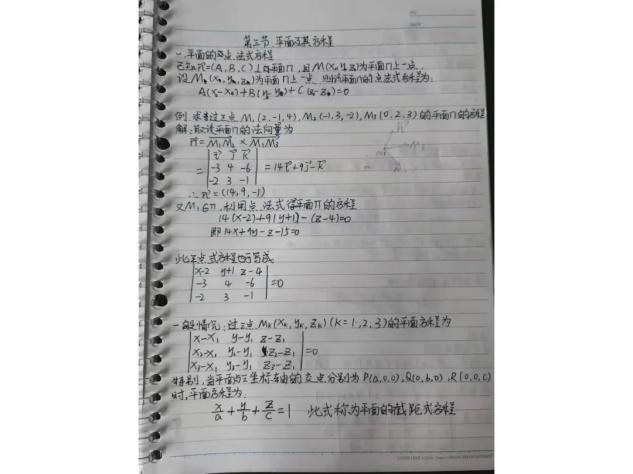 第三节 平面及其方程
一.平面的点法式方程
已知n=(A,B,C)⊥平面Π,且M(x,y,z)为平面Π上一点.
设M₀(x₀,y₀,z₀)为平面Π上一点 则该平面的点法式方程为:
A(x-x₀)+B(y-y₀)+C(z-z₀)=0
例.求过三点M₁(2,-1,4),M₂(-1,3,-2),M₃(0,2,3)的平面Π的方程
解:取该平面Π的法向量为
n=M₁M₂×M₁M₃
=|i j k; -3 4 -6; -2 3 -1|=14i+9j-k
∴n=(14,9,-1)
又M₁∈Π,利用点法式得平面Π的方程
14(x-2)+9(y+1)-(z-4)=0
即14x+9y-z-15=0
此三点式方程也可写成
|x-2 y+1 z-4|
|-3 4 -6|=0
|-2 3 -1|
一般情况:过三点Mₖ(xₖ,yₖ,zₖ)(k=1,2,3)的平面方程为
|x-x₁ y-y₁ z-z₁|
|x₂-x₁ y₂-y₁ z₂-z₁|=0
|x₃-x₁ y₃-y₁ z₃-z₁|
特别,当平面与三坐标轴的交点分别为P(a,0,0),Q(0,b,0),R(0,0,c)
时,平面方程为:
x/a+y/b+z/c=1 此式称为平面的截距式方程